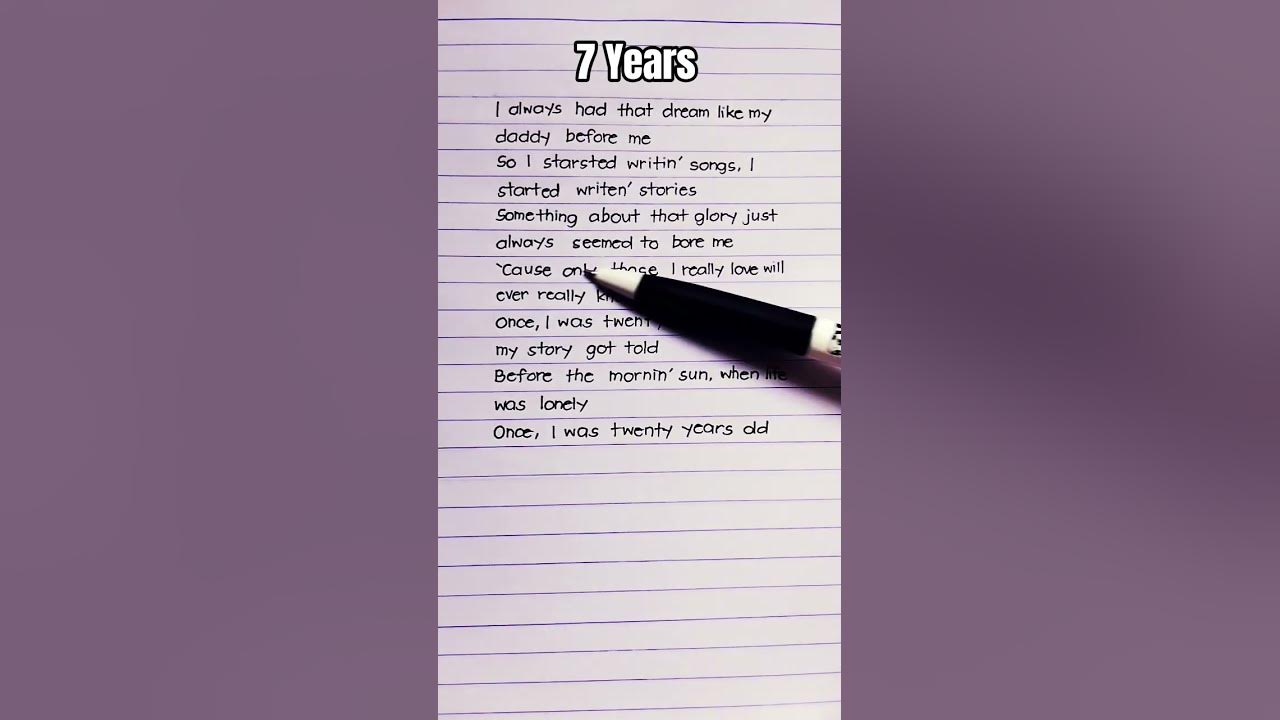 7 Years
I always had that dream like my
daddy before me
So I starsted writin' songs, I
started writen' stories
Something about that glory just
always seemed to bore me
`Cause only those I really love will
ever really
Once, I was
my story got told
Before the mornin' sun, when life
was lonely
Once, I was twenty years old